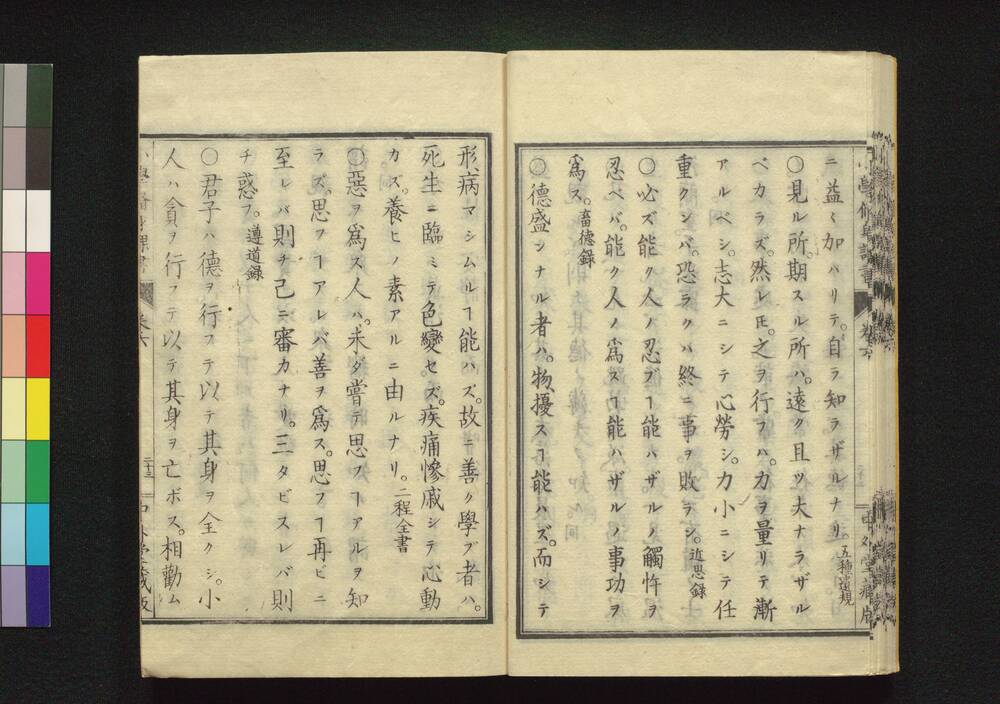 ニ益〻加ハリテ。自ラ知ラザルナリ。五種遺規
○見ル所。期スル所ハ。遠ク且ツ大ナラザル
ベカラズ。然レ𪜈。之ヲ行フハ。力ヲ量リテ漸
アルベシ。志大ニシテ心勞シ。力小ニシテ任
重クンバ。恐ラクハ終ニ事ヲ敗ラン。近思錄
○必ズ能ク人ノ忍ブヿ能ハザルノ觸忤ヲ
忍ベバ。能ク人ノ爲スヿ能ハザルノ事功ヲ
爲ス。畜德錄
○德盛ンナル者ハ。物擾スヿ能ハズ。而シテ
形病マシムルヿ能ハズ。故ニ善ク學ブ者ハ。
死生ニ臨ミテ色變セズ。疾痛慘戚シテ心動
カズ。養ヒノ素アルニ由ルナリ。二程全書
○惡ヲ爲ス人ハ。未ダ嘗テ思フヿアルヲ知
ラズ。思フヿアレバ善ヲ爲ス。思フヿ再ビニ
至レバ則チ己ニ審カナリ。三タビスレバ則
チ惑フ。遵道錄
○君子ハ德ヲ行フテ以テ其身ヲ全クシ。小
人ハ貪ヲ行フテ以テ其身ヲ亡ボス。相勸ム
二十三